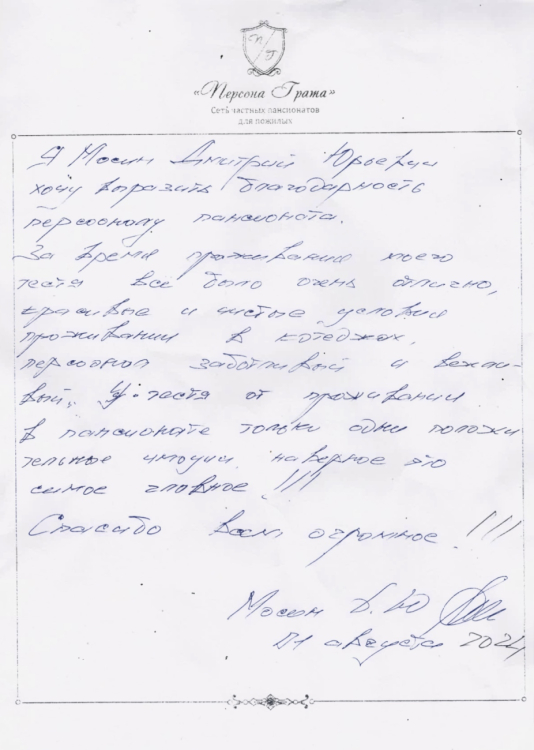 П
Г
«Персона Грата»
Сеть частных пансионатов
для пожилых
Я Мосин Дмитрий Юрьевич
хочу выразить благодарность
персоналу пансионата.
За время проживания моего
тестя всё было очень отлично,
красивые и чистые условия
проживании в котеджах,
персоонал заботливый и вежли-
вый. У тестя от проживании
в пансионате только одни положи
тельные имоции, наверное это
самое главное!!!
Спасибо Вам огромное!!!
Мосин Д.Ю
августа 2024